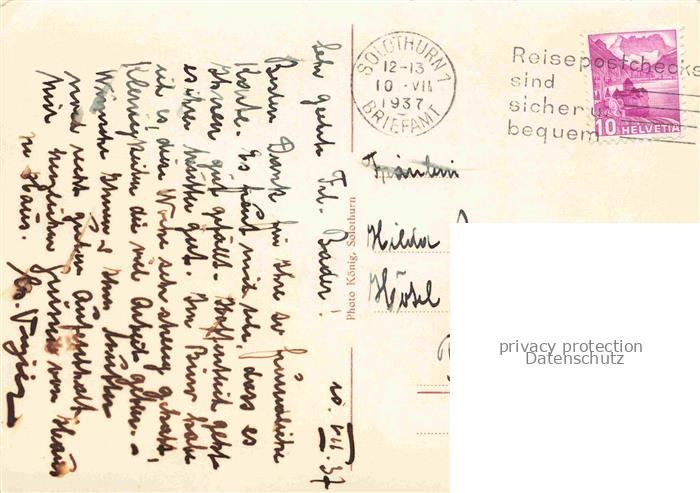 SOLOTHURN 1
12-13
10 · VII
1937
BRIEFAMT
Reisepostchecks
sind
sicher u.
bequem
10 HELVETIA
Fräulein
Hilda
Hôtel
Photo König, Solothurn
10. VII. 37
Sehr geehrtes Frl. Bader!
Besten Dank für Ihre so freundliche
Karte. Es freut mich sehr, dass es
Ihnen gut gefällt. Hoffentlich geht
es Ihrer Mutter gut. Im Büro habe
ich es diese Woche sehr streng gehabt,
Kleinigkeiten die viel Arbeit geben. -
Wünsche Ihnen & Ihrer Mutter
noch recht guten Aufenthalt,
mit herzlichen Grüssen von Haus
zu Haus.
privacy protection
Datenschutz